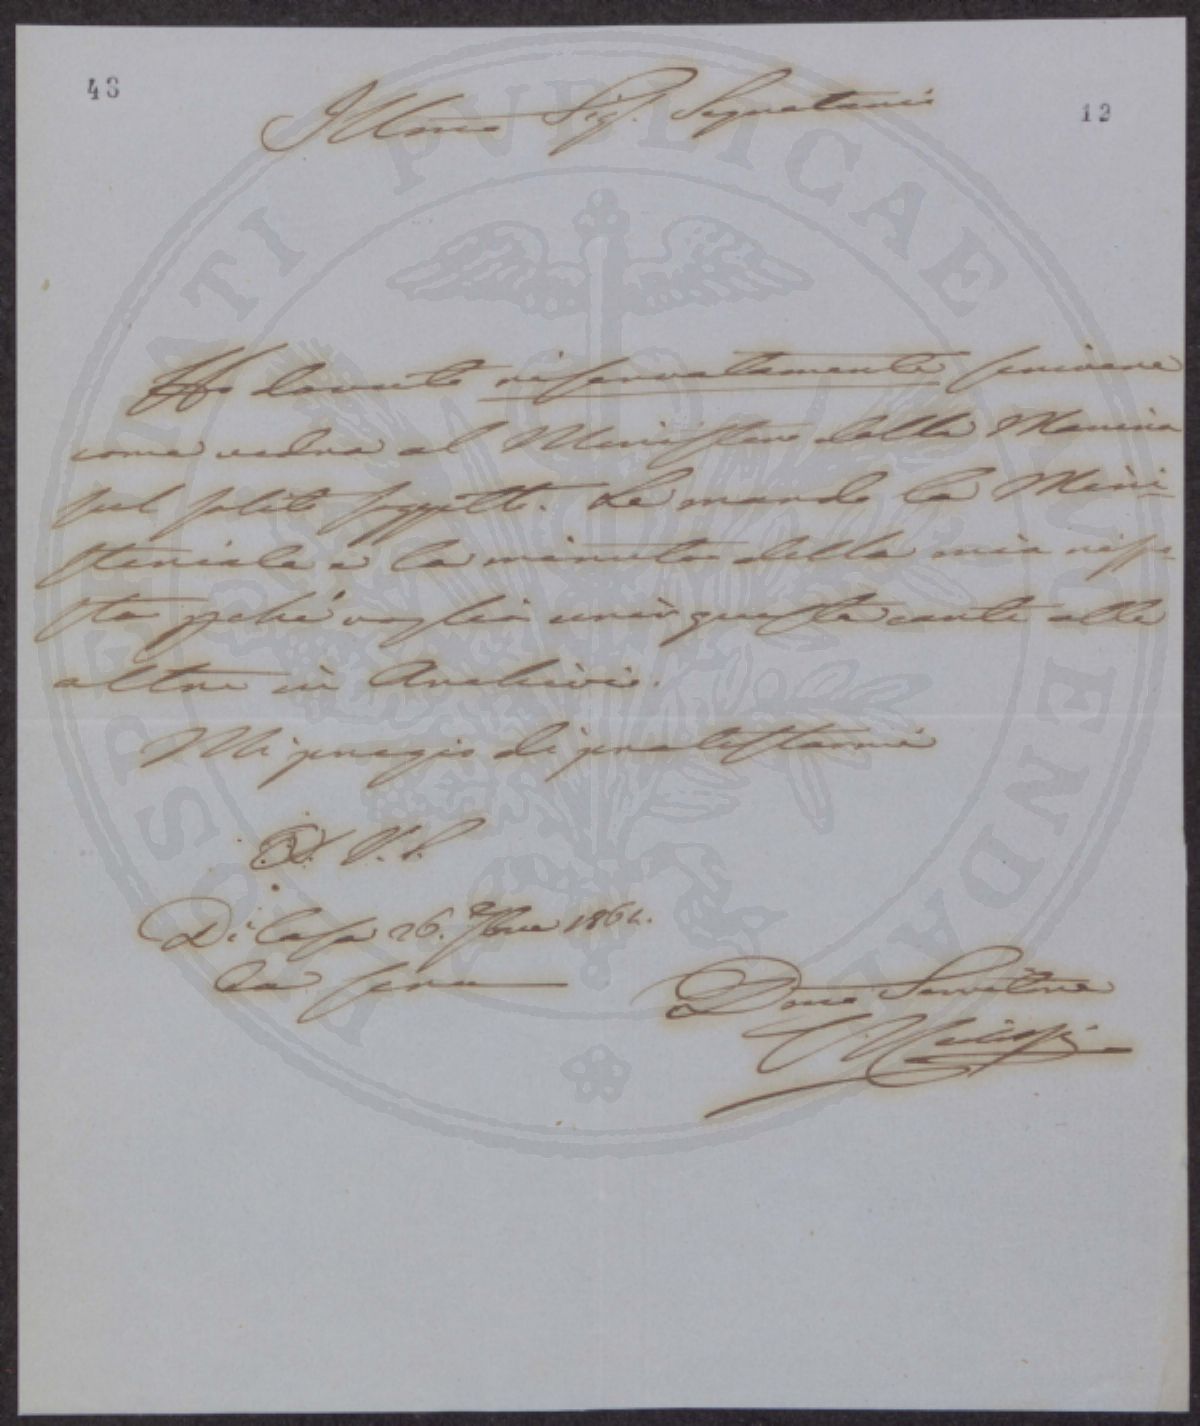 48
12
Illmo Sig. Segretario
Ho dovuto riservatamente scrivere
come vedrà al Ministero della Marina
sul solito soggetto. Le mando la Mini-
steriale e la minuta della mia rispo-
sta pché voglia unir queste carte alle
altre in Archivio.
Mi pregio di protestarmi
D. V. S.
Di Casa 26. 7bre 1862.
la sera
Dmo Servitore